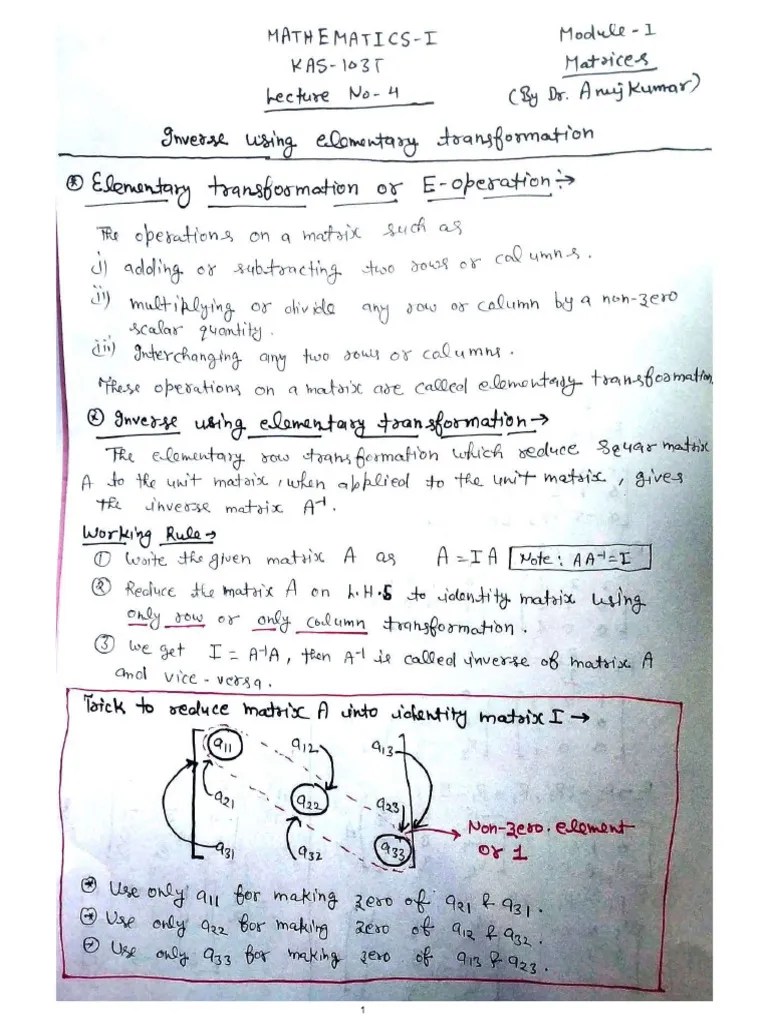 MATHEMATICS-I
Module-1
KAS-103T
Matrices
Lecture No-4
(By Dr. Anuj Kumar)
Inverse using elementary transformation
⊛ Elementary transformation or E-operation:→
The operations on a matrix such as
i) adding or subtracting two rows or columns.
ii) multiplying or divide any row or column by a non-zero
scalar quantity.
iii) Interchanging any two rows or columns.
These operations on a matrix are called elementary transformation
⊛ Inverse using elementary transformation→
The elementary row transformation which reduce squar matrix
A to the unit matrix, when applied to the unit matrix, gives
the inverse matrix A⁻¹.
Working Rule→
① Write the given matrix A as A = I A Note: AA⁻¹=I
② Reduce the matrix A on L.H.S to identity matrix using
only row or only column transformation.
③ We get I = A⁻¹A, then A⁻¹ is called inverse of matrix A
and vice-versa.
Trick to reduce matrix A into identity matrix I →
a11 a12 a13
a21 a22 a23
Non-zero element
a31 a32 a33
or 1
⊛ Use only a11 for making zero of a21 & a31.
→ Use only a22 for making zero of a12 & a32.
→ Use only a33 for making zero of a13 & a23.
1